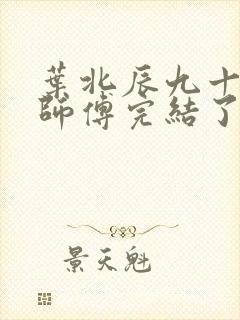 葉北辰九十
師傅完結了
景天魁